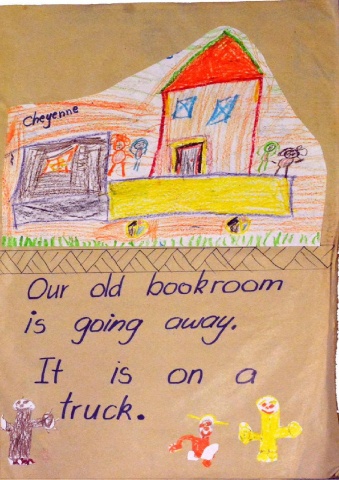 Cheyenne
Our old bookroom
is going away.
It is on a
truck.